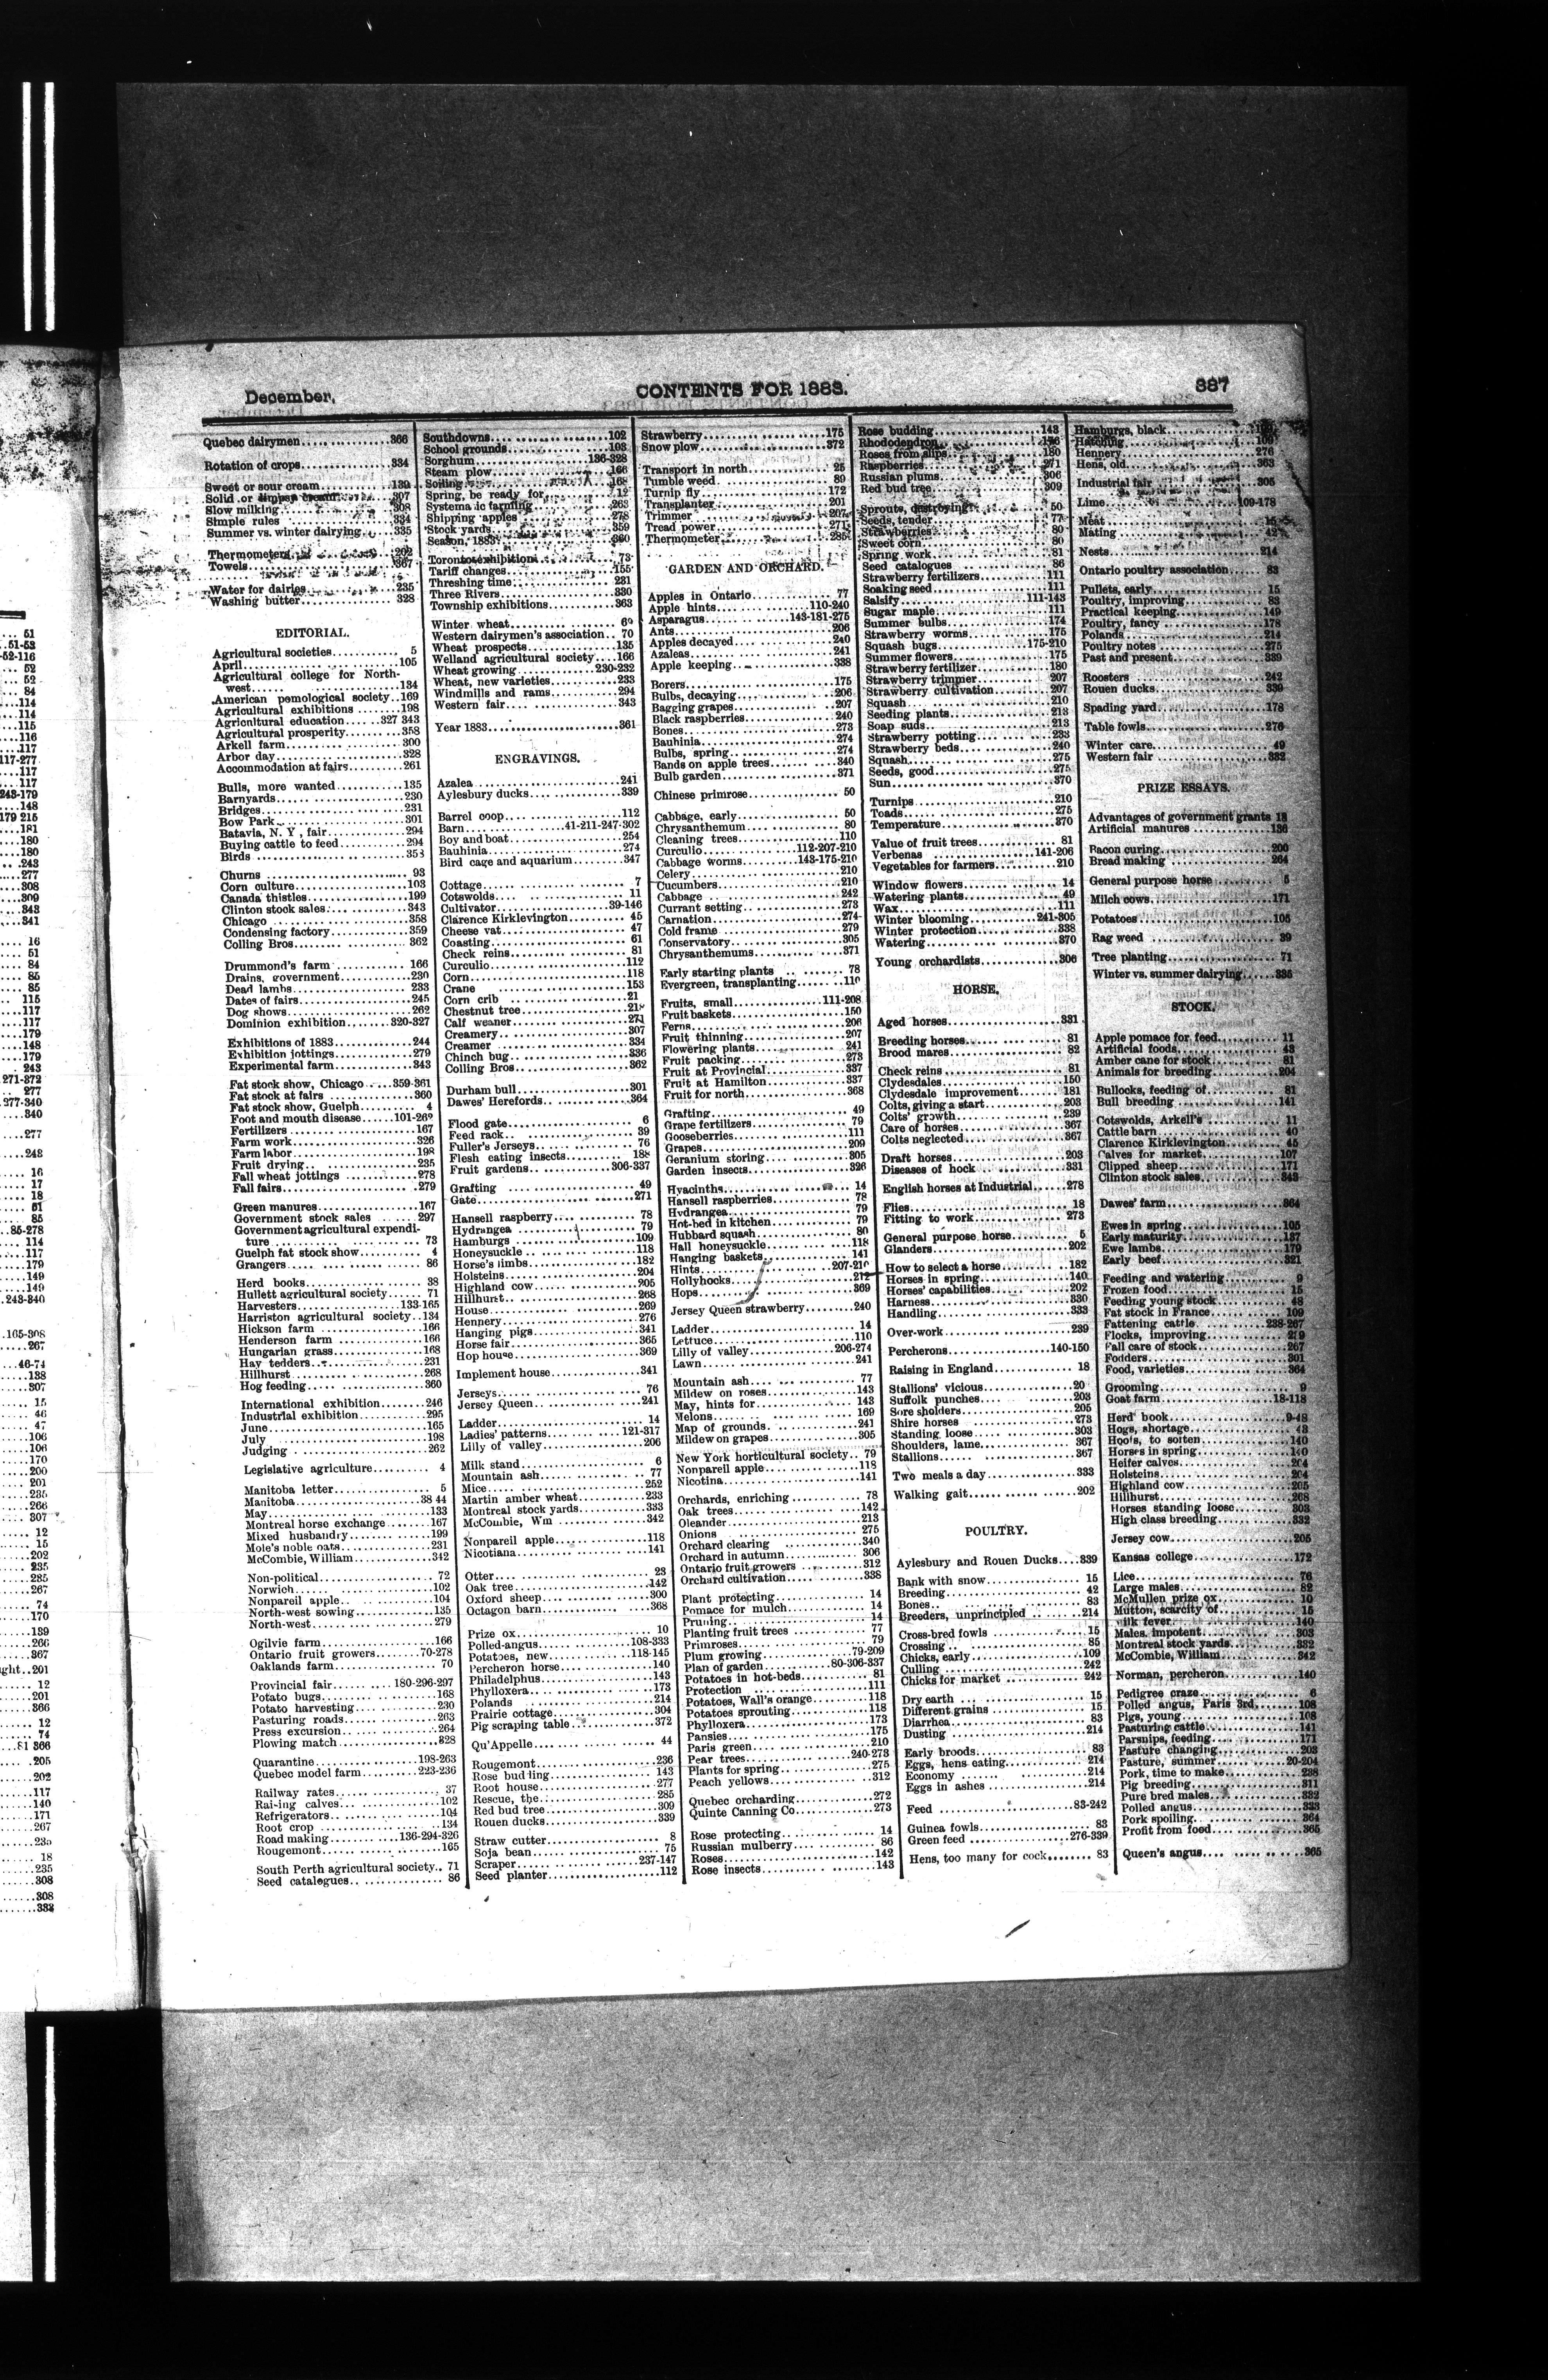 December.
CONTENTS FOR 1883.
387
Quebec dairymen............366
Rotation of crops............334
Sweet or sour cream............139
Solid or
307
Slow milking............308
Simple rules............334
Summer vs. winter dairying....335
Thermometers............202
Towels............367
Water for dairies............235
Washing butter............328
EDITORIAL.
Agricultural societies............5
April............105
Agricultural college for North-
west............134
American pomological society..169
Agricultural exhibitions........198
Agricultural education......327 343
Agricultural prosperity........358
Arkell farm............300
Arbor day............328
Accommodation at fairs........261
Bulls, more wanted............135
Barnyards............230
Bridges............231
Bow Park............301
Batavia, N. Y , fair............294
Buying cattle to feed............294
Birds............353
Churns............93
Corn culture............103
Canada thistles............199
Clinton stock sales............343
Chicago............358
Condensing factory............359
Colling Bros............362
Drummond's farm............166
Drains, government............230
Dead lambs............233
Dates of fairs............245
Dog shows............262
Dominion exhibition........320-327
Exhibitions of 1883............244
Exhibition jottings............279
Experimental farm............343
Fat stock show, Chicago....359-361
Fat stock at fairs............360
Fat stock show, Guelph........4
Foot and mouth disease......101-269
Fertilizers............167
Farm work............326
Farm labor............198
Fruit drying............235
Fall wheat jottings............278
Fall fairs............279
Green manures............167
Government stock sales........297
Government agricultural expendi-
ture............73
Guelph fat stock show..........4
Grangers............86
Herd books............38
Hullett agricultural society......71
Harvesters............133-165
Harriston agricultural society..134
Hickson farm............166
Henderson farm............166
Hungarian grass............168
Hay tedders............231
Hillhurst............268
Hog feeding............360
International exhibition........246
Industrial exhibition............295
June............165
July............198
Judging............262
Legislative agriculture..........4
Manitoba letter............5
Manitoba............38 44
May............133
Montreal horse exchange........167
Mixed husbandry............199
Mole's noble oats............231
McCombie, William............342
Non-political............72
Norwich............102
Nonpareil apple............104
North-west sowing............135
North-west............279
Ogilvie farm............166
Ontario fruit growers........70-278
Oaklands farm............70
Provincial fair........180-296-297
Potato bugs............168
Potato harvesting............230
Pasturing roads............263
Press excursion............264
Plowing match............328
Quarantine............198-263
Quebec model farm........223-236
Railway rates............37
Raising calves............102
Refrigerators............104
Root crop............134
Road making........136-294-326
Rougemont............165
South Perth agricultural society..71
Seed catalogues............86
Southdowns............102
School grounds............103
Sorghum............136-328
Steam plow............166
Soiling............168
Spring, be ready for............12
Systema ic farming............263
Shipping apples............278
Stock yards............359
Season, 1883............360
Toronto exhibition............73
Tariff changes............155
Threshing time............231
Three Rivers............330
Township exhibitions............363
Winter wheat............69
Western dairymen's association..70
Wheat prospects............135
Welland agricultural society....166
Wheat growing............230-232
Wheat, new varieties............233
Windmills and rams............294
Western fair............343
Year 1883............361
ENGRAVINGS.
Azalea............241
Aylesbury ducks............339
Barrel coop............112
Barn............41-211-247-302
Boy and boat............254
Bauhinia............274
Bird cage and aquarium........347
Cottage............7
Cotswolds............11
Cultivator............39-146
Clarence Kirklevington..........45
Cheese vat............47
Coasting............61
Check reins............81
Curculio............112
Corn............118
Crane............153
Corn crib............21
Chestnut tree............218
Calf weaner............271
Creamery............307
Creamer............334
Chinch bug............336
Colling Bros............362
Durham bull............301
Dawes' Herefords............364
Flood gate............6
Feed rack............39
Fuller's Jerseys............76
Flesh eating insects............188
Fruit gardens............306-337
Grafting............49
Gate............271
Hansell raspberry............78
Hydrangea............79
Hamburgs............109
Honeysuckle............118
Horse's limbs............182
Holsteins............204
Highland cow............205
Hillhurst............268
House............269
Hennery............276
Hanging pigs............341
Horse fair............365
Hop house............369
Implement house............341
Jerseys............76
Jersey Queen............241
Ladder............14
Ladies' patterns............121-317
Lilly of valley............206
Milk stand............6
Mountain ash............77
Mice............252
Martin amber wheat............233
Montreal stock yards............333
McCombie, Wm............342
Nonpareil apple............118
Nicotiana............141
Otter............23
Oak tree............142
Oxford sheep............300
Octagon barn............368
Prize ox............10
Polled-angus............108-333
Potatoes, new............118-145
Percheron horse............140
Philadelphus............143
Phylloxera............173
Polands............214
Prairie cottage............304
Pig scraping table............372
Qu'Appelle............44
Rougemont............236
Rose budding............143
Root house............277
Rescue, the............285
Red bud tree............309
Rouen ducks............339
Straw cutter............8
Soja bean............75
Scraper............237-147
Seed planter............112
Strawberry............175
Snow plow............372
Transport in north............25
Tumble weed............89
Turnip fly............172
Transplanter............201
Trimmer............207
Tread power............271
Thermometer............285
GARDEN AND ORCHARD.
Apples in Ontario............77
Apple hints............110-240
Asparagus............143-181-275
Ants............206
Apples decayed............240
Azaleas............241
Apple keeping............338
Borers............175
Bulbs, decaying............206
Bagging grapes............207
Black raspberries............240
Bones............273
Bauhinia............274
Bulbs, spring............274
Bands on apple trees............340
Bulb garden............371
Chinese primrose............50
Cabbage, early............50
Chrysanthemum............80
Cleaning trees............110
Curculio............112-207-210
Cabbage worms............143-175-210
Celery............210
Cucumbers............210
Cabbage............242
Currant setting............273
Carnation............274
Cold frame............279
Conservatory............305
Chrysanthemums............371
Early starting plants............78
Evergreen, transplanting........110
Fruits, small............111-208
Fruit baskets............150
Ferns............206
Fruit thinning............207
Flowering plants............241
Fruit packing............273
Fruit at Provincial............337
Fruit at Hamilton............337
Fruit for north............368
Grafting............49
Grape fertilizers............79
Gooseberries............111
Grapes............209
Geranium storing............305
Garden insects............326
Hyacinths............14
Hansell raspberries............78
Hydrangea............79
Hot-bed in kitchen............79
Hubbard squash............80
Hall honeysuckle............118
Hanging baskets............141
Hints............207-210
Hollyhocks............212
Hops............369
Jersey Queen strawberry........240
Ladder............14
Lettuce............110
Lilly of valley............206-274
Lawn............241
Mountain ash............77
Mildew on roses............143
May, hints for............143
Melons............169
Map of grounds............241
Mildew on grapes............305
New York horticultural society..79
Nonpareil apple............118
Nicotina............141
Orchards, enriching............78
Oak trees............142
Oleander............213
Onions............275
Orchard clearing............340
Orchard in autumn............306
Ontario fruit growers............312
Orchard cultivation............338
Plant protecting............14
Pomace for mulch............14
Pruning............14
Planting fruit trees............77
Primroses............79
Plum growing............79-209
Plan of garden............80-306-337
Potatoes in hot-beds............81
Protection............111
Potatoes, Wall's orange........118
Potatoes sprouting............118
Phylloxera............173
Pansies............175
Paris green............210
Pear trees............240-273
Plants for spring............275
Peach yellows............312
Quebec orcharding............272
Quinte Canning Co............273
Rose protecting............14
Russian mulberry............86
Roses............142
Rose insects............143
Rose budding............143
Rhododendron............176
Roses from slips............180
Raspberries............271
Russian plums............306
Red bud tree............309
Sprouts, destroying............50
Seeds, tender............77
Strawberries............80
Sweet corn............80
Spring work............81
Seed catalogues............86
Strawberry fertilizers............111
Soaking seed............111
Salsify............111-143
Sugar maple............111
Summer bulbs............174
Strawberry worms............175
Squash bugs............175-210
Summer flowers............175
Strawberry fertilizer............180
Strawberry trimmer............207
Strawberry cultivation............207
Squash............210
Seeding plants............213
Soap suds............213
Strawberry potting............233
Strawberry beds............240
Squash............275
Seeds, good............275
Sun............370
Turnips............210
Toads............275
Temperature............370
Value of fruit trees............81
Verbenas............141-206
Vegetables for farmers............210
Window flowers............14
Watering plants............49
Wax............111
Winter blooming............241-305
Winter protection............338
Watering............370
Young orchardists............306
HORSE.
Aged horses............331
Breeding horses............81
Brood mares............82
Check reins............81
Clydesdales............150
Clydesdale improvement........181
Colts, giving a start............203
Colts' growth............239
Care of horses............367
Colts neglected............367
Draft horses............203
Diseases of hock............331
English horses at Industrial......278
Flies............18
Fitting to work............273
General purpose horse............5
Glanders............202
How to select a horse............182
Horses in spring............140
Horses' capabilities............202
Harness............330
Handling............333
Over-work............239
Percherons............140-150
Raising in England............18
Stallions' vicious............20
Suffolk punches............203
Sore sholders............205
Shire horses............273
Standing loose............303
Shoulders, lame............367
Stallions............367
Two meals a day............333
Walking gait............202
POULTRY.
Aylesbury and Rouen Ducks....339
Bank with snow............15
Breeding............42
Bones............83
Breeders, unprincipled........214
Cross-bred fowls............15
Crossing............85
Chicks, early............109
Culling............242
Chicks for market............242
Dry earth............15
Different grains............15
Diarrhea............83
Dusting............214
Early broods............83
Eggs, hens eating............214
Economy............214
Eggs in ashes............214
Feed............83-242
Guinea fowls............83
Green feed............276-339
Hens, too many for cock........83
Hamburgs, black............109
Hatching............109
Hennery............276
Hens, old............363
Industrial fair............305
Lime............109-178
Meat............15
Mating............42
Nests............214
Ontario poultry association......83
Pullets, early............15
Poultry, improving............83
Practical keeping............149
Poultry, fancy............178
Polands............214
Poultry notes............275
Past and present............339
Roosters............242
Rouen ducks............339
Spading yard............178
Table fowls............276
Winter care............49
Western fair............332
PRIZE ESSAYS.
Advantages of government grants 18
Artificial manures............136
Bacon curing............200
Bread making............264
General purpose horse............5
Milch cows............171
Potatoes............105
Rag weed............39
Tree planting............71
Winter vs. summer dairying....335
STOCK.
Apple pomace for feed............11
Artificial foods............43
Amber cane for stock............81
Animals for breeding............204
Bullocks, feeding of............81
Bull breeding............141
Cotswolds, Arkell's............11
Cattle barn............40
Clarence Kirklevington............45
Calves for market............107
Clipped sheep............171
Clinton stock sales............343
Dawes' farm............364
Ewes in spring............105
Early maturity............137
Ewe lambs............179
Early beef............321
Feeding and watering............9
Frozen food............15
Feeding young stock............48
Fat stock in France............109
Fattening cattle............238-267
Flocks, improving............239
Fall care of stock............267
Fodders............301
Food, varieties............364
Grooming............9
Goat farm............18-118
Herd book............9-48
Hogs, shortage............43
Hoofs, to soften............140
Horses in spring............140
Heifer calves............204
Holsteins............204
Highland cow............205
Hillhurst............268
Horses standing loose............303
High class breeding............332
Jersey cow............205
Kansas college............172
Lice............76
Large males............82
McMullen prize ox............10
Mutton, scarcity of............15
Milk fever............140
Males, impotent............303
Montreal stock yards............332
McCombie, William............342
Norman, percheron............140
Pedigree craze............6
Polled angus, Paris 3rd............108
Pigs, young............108
Pasturing cattle............141
Parsnips, feeding............171
Pasture changing............203
Pasture, summer............20-204
Pork, time to make............238
Pig breeding............311
Pure bred males............332
Polled angus............333
Pork spoiling............364
Profit from food............365
Queen's angus............365